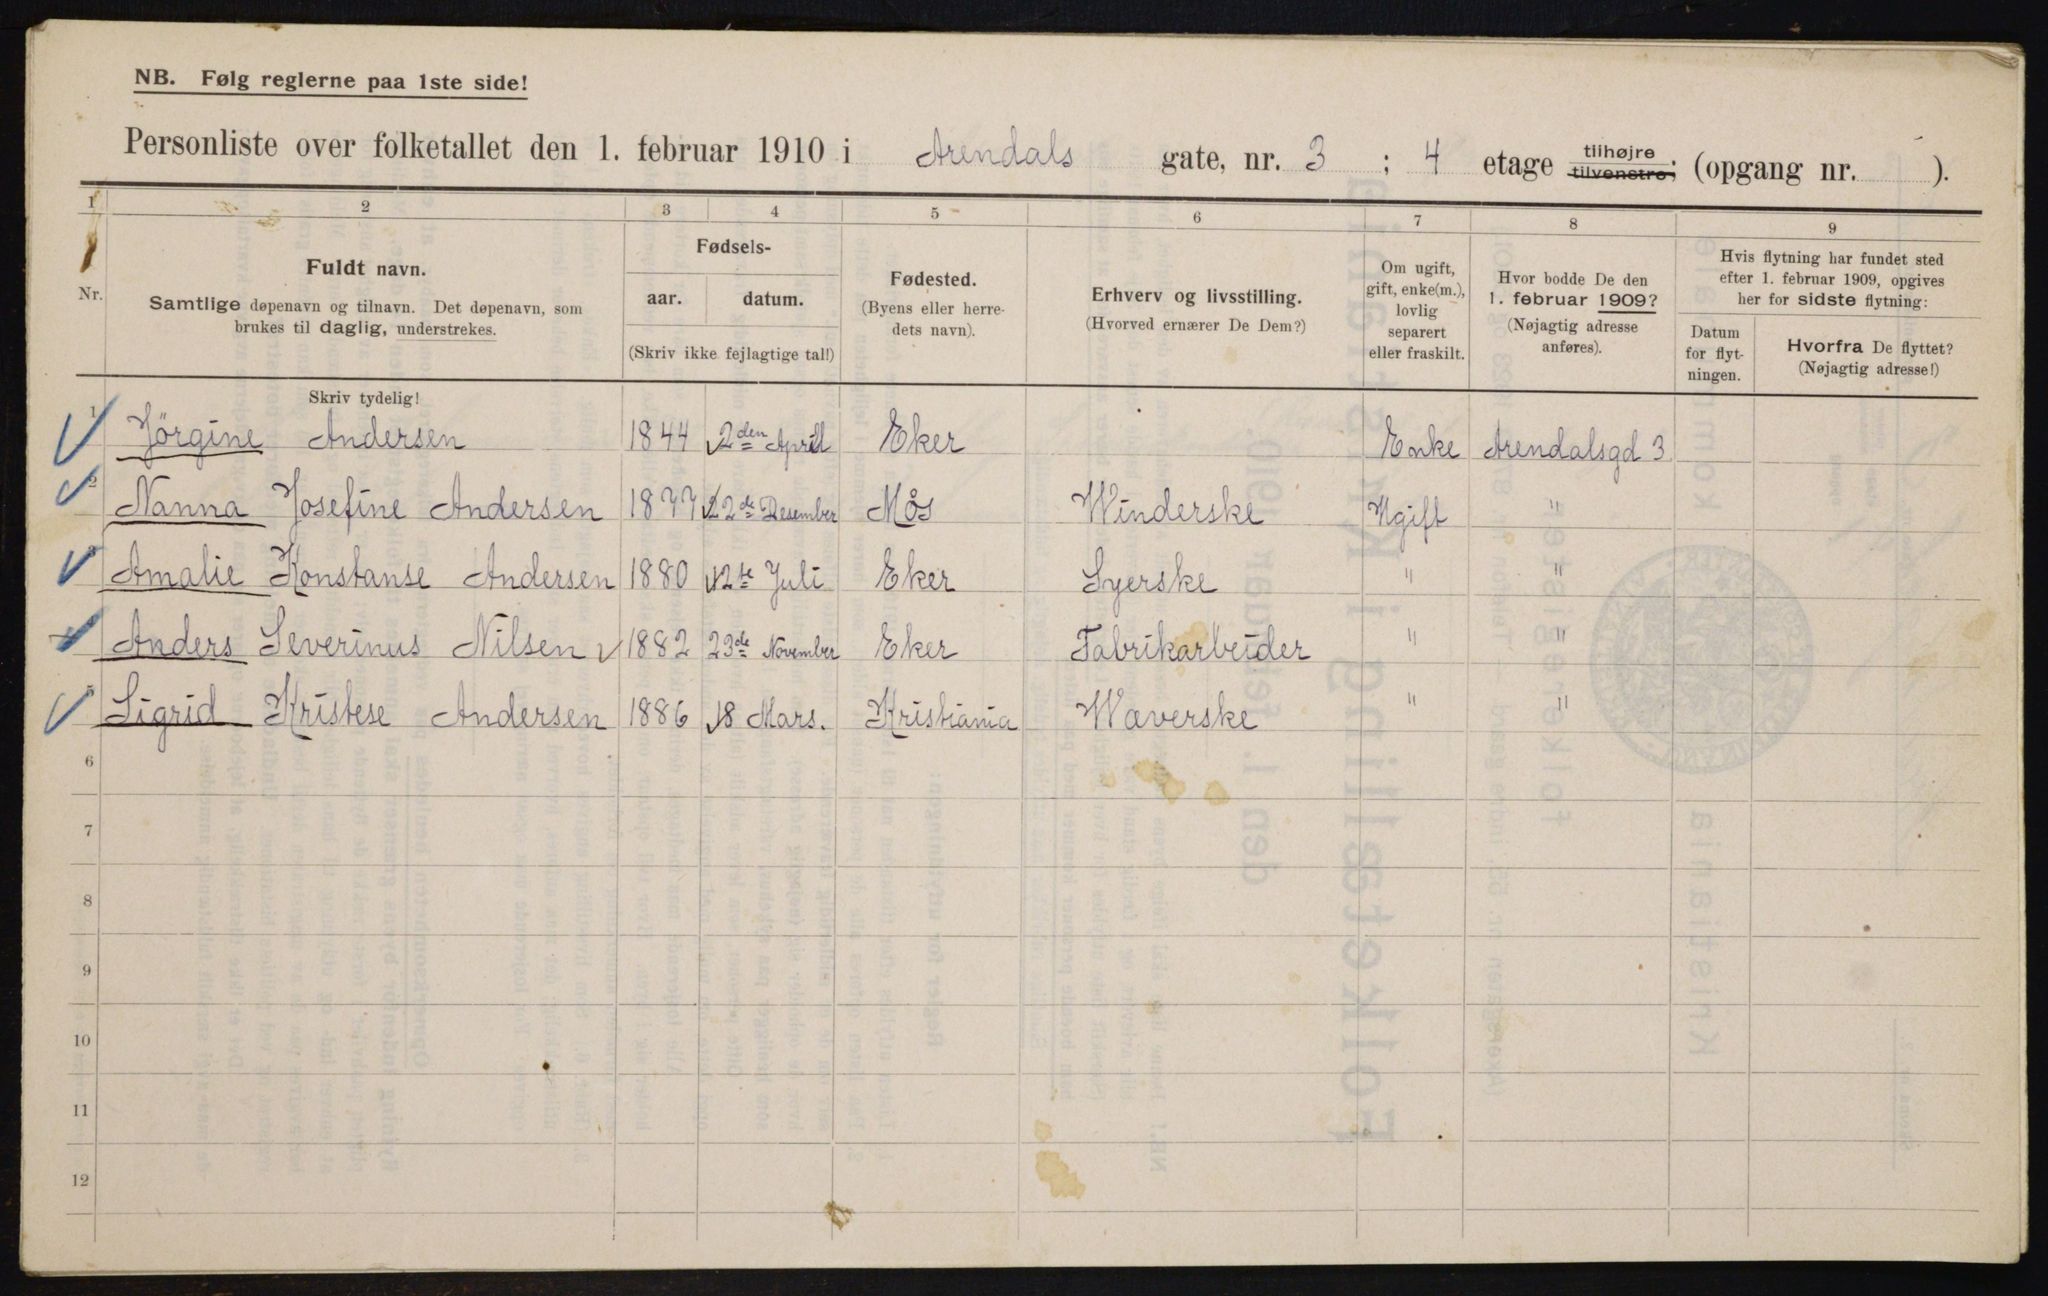 NB. Følg reglerne paa 1ste side!
Personliste over folketallet den 1. februar 1910 i Arendals gate, nr. 3 ; 4 etage tilhøjre tilvenstre; (opgang nr. ).
1 2 3 4 5 6 7 8 9
Nr.
Fuldt navn.
Samtlige døpenavn og tilnavn. Det døpenavn, som
brukes til daglig, understrekes.
Fødsels-
aar. datum.
(Skriv ikke fejlagtige tal!)
Fødested.
(Byens eller herre-
dets navn).
Erhverv og livsstilling.
(Hvorved ernærer De Dem?)
Om ugift,
gift, enke(m.),
lovlig
separert
eller fraskilt.
Hvor bodde De den
1. februar 1909?
(Nøjagtig adresse
anføres).
Hvis flytning har fundet sted
efter 1. februar 1909, opgives
her for sidste flytning:
Datum
for flyt-
ningen.
Hvorfra De flyttet?
(Nøjagtig adresse!)
Skriv tydelig!
1 Jörgine Andersen 1844 2den April Eker Enke Arendalsgd 3
2 Nanna Josefine Andersen 1877 22de Desember Mås Winderske Ugift "
3 Amalie Konstanse Andersen 1880 2de Juli Eker Syerske " "
4 Anders Severinus Nilsen 1882 23de November Eker Fabrikarbeider " "
5 Sigrid Kristese Andersen 1886 18 Mars. Kristiania Waverske " "
6
7
8
9
10
11
12